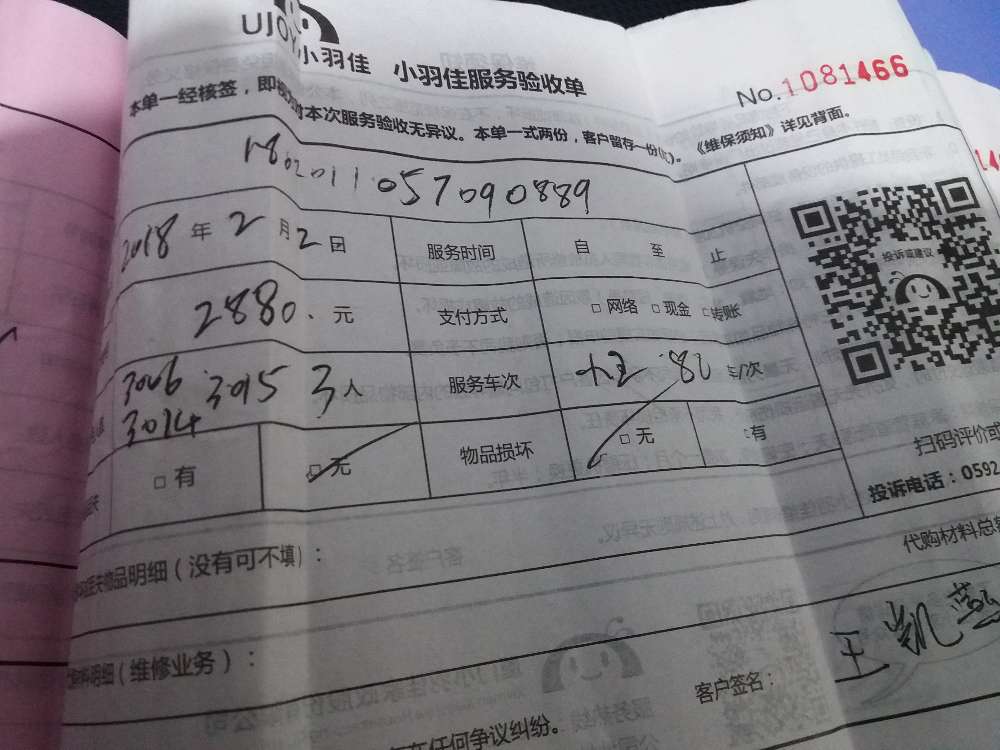 UJOY 小羽佳 小羽佳服务验收单
No.1081466
本单一经核签,即 对本次服务验收无异议。本单一式两份,客户留存一份 。《维保须知》详见背面。
1802011057090889
2018年2月2日 服务时间 自 至 止
投诉或建议
2880.元 支付方式 □网络 □现金 □转账
3006 3015 3人 服务车次 80 车/次
3014
□有 □无 物品损坏 □无 有
扫码评价或
投诉电话:0592
物品明细(没有可不填):
代购材料总
明细(维修业务):
客户签名: 王凯燕
任何争议纠纷。